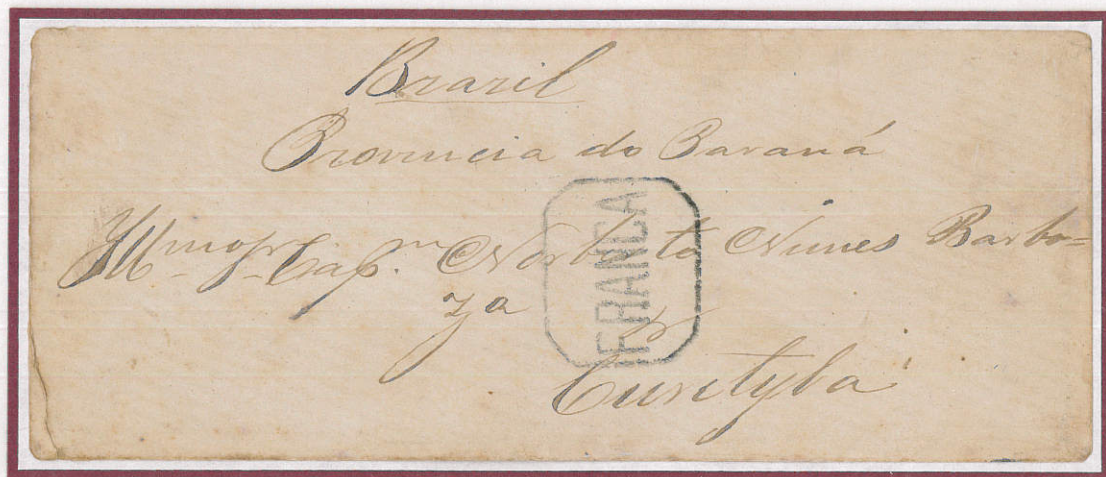 Brazil
Provincia do Paraná
Illmo Sr Cap.m Norberto Nunes Barbo=
za
FRANCA
Curityba